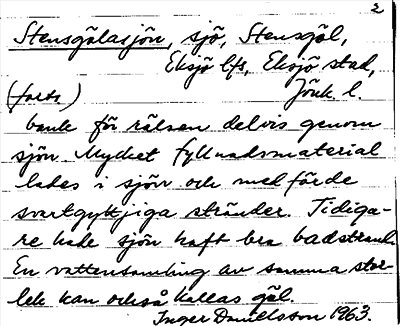 2
Stensgölasjön, sjö, Stensgöl,
Eksjö lfs, Eksjö stad,
(forts) Jönk. l.
bank för rälsen delvis genom
sjön. Mycket fyllnadsmaterial
lades i sjön och medförde
svartgyttjiga stränder. Tidiga-
re hade sjön haft bra badstrand.
En vattensamling av samma stor-
lek kan också kallas göl.
Inger Danielsson 1963.